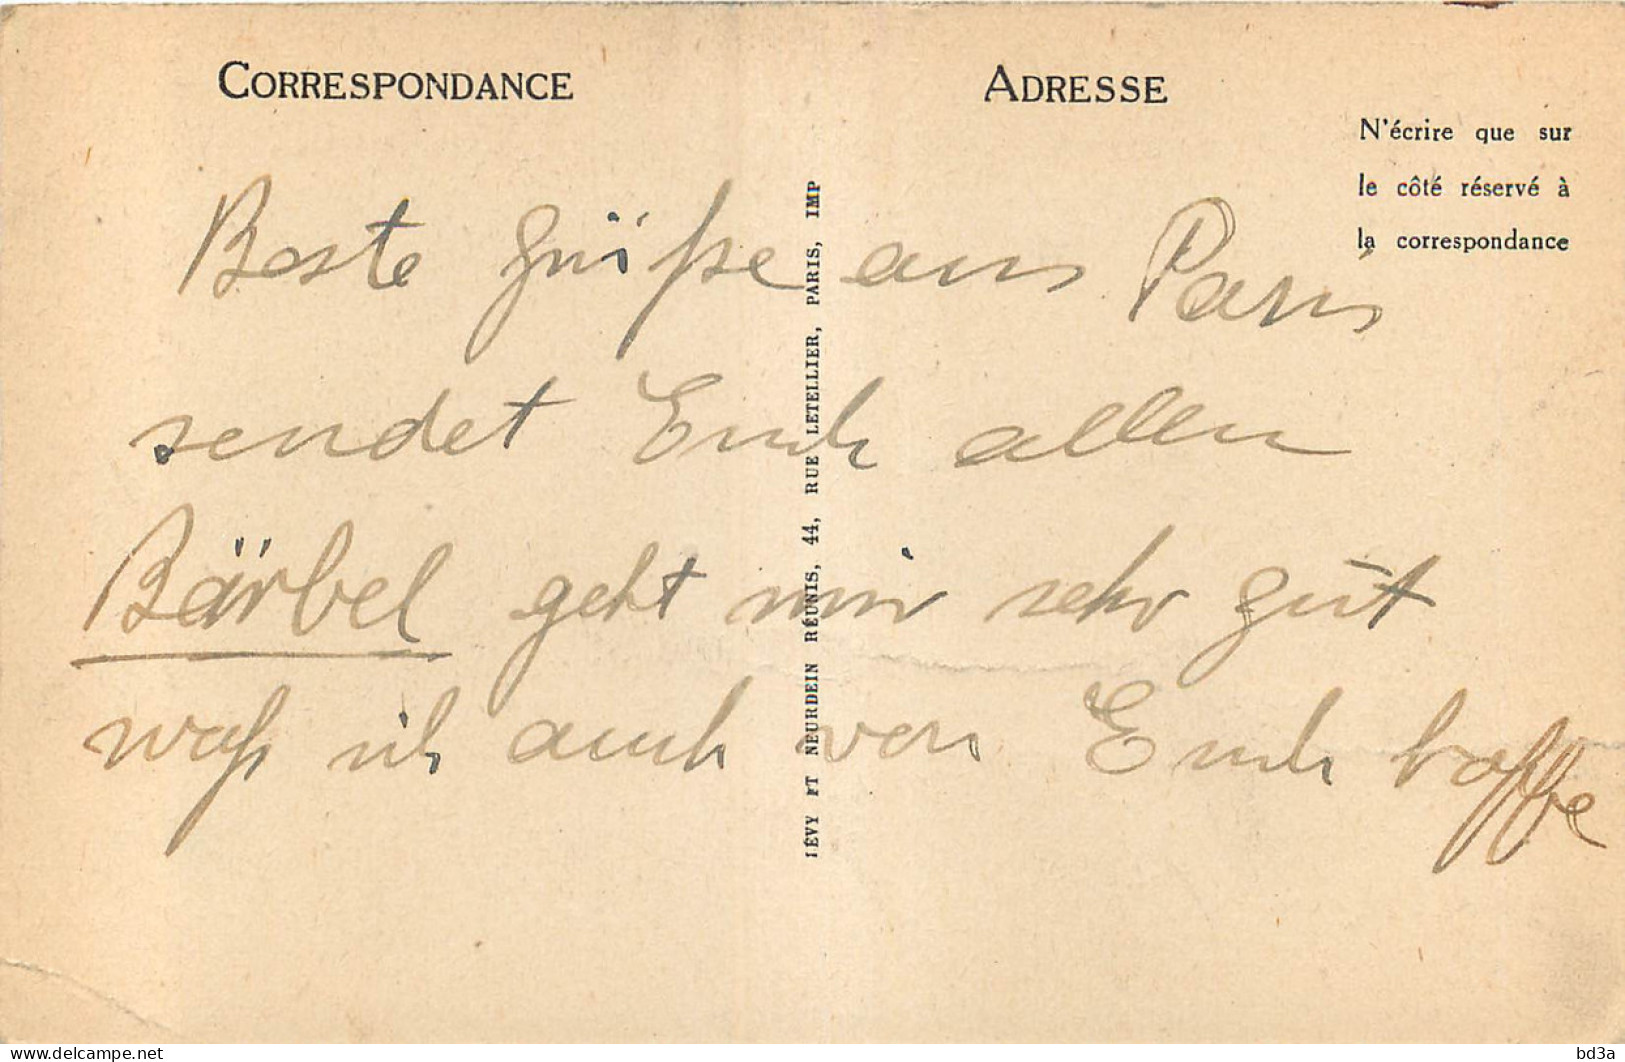 CORRESPONDANCE
ADRESSE
N'écrire que sur
le côté réservé à
la correspondance
Beste Grüße aus Paris
sendet Euch allen
Bärbel geht mir sehr gut
waß ich auch von Euch hoffe
LÉVY ET NEURDEIN RÉUNIS, 44, RUE LETELLIER, PARIS, IMP
delcampe.net
bd3a